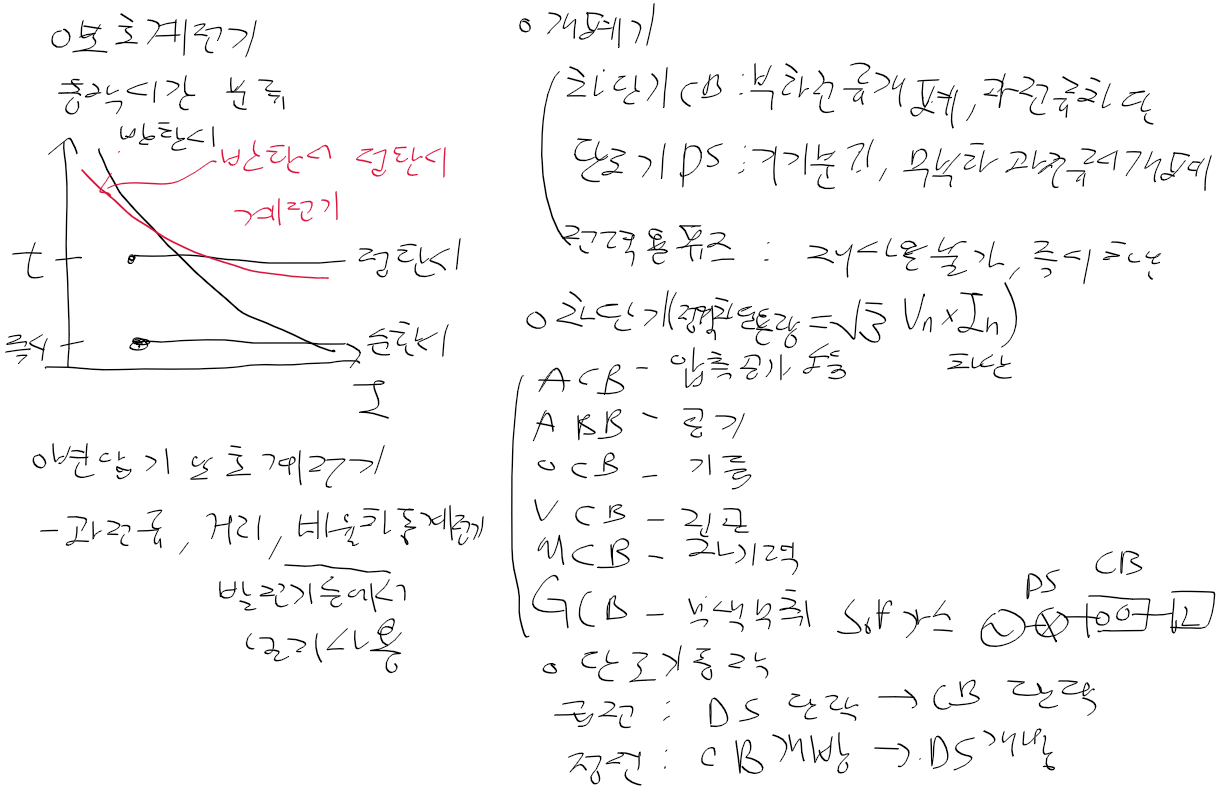 o보호계전기
동작시간 분류
반한시
반한시 정한시
계전기
t
정한시
즉시
순한시
I
o변압기 보호계전기
-과전류, 거리, 비율차동계전기
발전기등에서
단락사용
o 개폐기
차단기 CB : 부하전류개폐, 과전류차단
단로기 DS : 기기분리, 무부하 과전류시개폐
전력용퓨즈 : 재사용불가, 즉시차단
o 차단기(정격차단용량 = √3 Vn × In)
차단
ACB - 압축공기
ABB - 공기
OCB - 기름
VCB - 진공
MCB - 자기력
GCB - 무색무취 Sof가스
DS CB
L
o 단로기동작
급전 : DS 단락 → CB 단락
정전 : CB개방 → DS개방